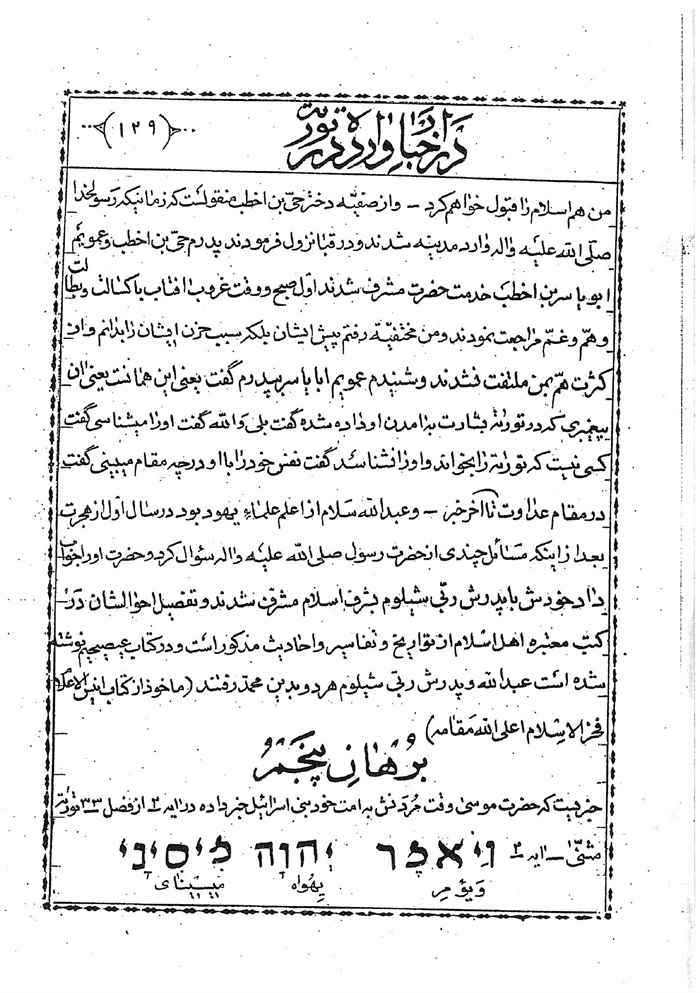 (۱۲۹)
در اخبار وارده در توریة
من هم اسلام را قبول خواهم کرد - و از صفیّه دختر حیّ بن اخطب منقولست که زمانیکه رسولخدا
صلّی الله علیه واله وارد مدینه شدند و در قبا نزول فرمودند پدرم حیّ بن اخطب و عمویم
ابو یاسر بن اخطب خدمت حضرت مشرف شدند اوّل صبح و وقت غروب افتاب با کسالت و بطالت
و همّ و غمّ مراجعت نمودند و من مختفیّه رفتم پیش ایشان بلکه سبب حزن ایشان را بدانم و از
کثرت همّ بمن ملتفت نشدند و شنیدم عمویم ابا یاسر بپدرم گفت یعنی این همانست یعنی ان
پیغمبری که در توراة بشارت به امدن او داده شده گفت بلی والله گفت او را میشناسی گفت
کسی نیست که توراة را بخواند و او را نشناسد گفت نفس خود را با او در چه مقام میبینی گفت
در مقام عداوت تا آخر خبر - و عبدالله سلام از اعلم علماء یهود بود در سال اول از هجرت
بعد از اینکه مسائل چندی از حضرت رسول صلی الله علیه واله سؤال کرد و حضرت او را جواب
داد خودش با پدرش ربّی شیلوم بشرف اسلام مشرف شدند و تفصیل احوالشان در
کتب معتبره اهل اسلام از تواریخ و تفاسیر و احادیث مذکور است و در کتاب عیصیحیم نوشته
شده است عبدالله و پدرش ربّی شیلوم هر دو بدین محمد رفتند (ماخوذ از کتاب انیس الاعلام
فخر الاسلام اعلی الله مقامه)
برهان پنجم
خبریست که حضرت موسی وقت مردنش به امت خود بنی اسرائیل خبر داده در ایه ۲ از فصل ۳۳ توراة
مثنّی - ایه ۲ וַיֹּאמַר יהוה מִסִינַי
وَیُؤمِر یِهُواه میسینای